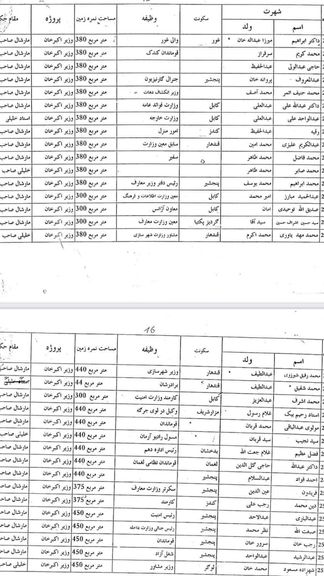 شهرت
اسم ولد سکونت وظیفه مساحت نمره زمین پروژه مقام حک
داکتر ابراهیم میرزا عبدالله خان غور والی غور 380 متر مربع وزیر اکبرخان مارشال صاحب
محمد کریم سرفراز قوماندان کندک 380 متر مربع وزیر اکبرخان مارشال صاحب
حاجی عبدالولی عبدالحفیظ 380 متر مربع وزیر اکبرخان مارشال صاحب
عبدالمعروف پروانه خان پنجشیر جنرال گارنیزیون 380 متر مربع وزیر اکبرخان مارشال صاحب
محمد حنیف اتمر محمد آصف وزیر انکشاف دهات 380 متر مربع وزیر اکبرخان مارشال صاحب
داکتر عبدالله علی عبدالعلی کابل وزارت فواید عامه 380 متر مربع وزیر اکبرخان مارشال صاحب
عبدالواحد علی عبدالعلی کابل وزارت خارجه 380 متر مربع وزیر اکبرخان استاد خلیلی
رقیه عبدالحفیظ کندز امور منزل 380 متر مربع وزیر اکبرخان مارشال صاحب
عبدالکریم محمد امین قندهار سابق معین وزارت 380 متر مربع وزیر اکبرخان مارشال صاحب
محمد فاضل محمد طاهر سفیر 380 متر مربع وزیر اکبرخان مارشال صاحب
محمد صابر محمد طاهر 380 متر مربع وزیر اکبرخان خلیلی صاحب
محمد ابراهیم محمد یوسف پنجشیر رئیس دفتر وزیر معارف 380 متر مربع وزیر اکبرخان مارشال صاحب
عبدالحمید مبارز امیر محمد کابل معین وزارت اطلاعات و فرهنگ 300 متر مربع وزیر اکبرخان مارشال صاحب
صدیق الله توحیدی امان کابل معاون آژانس 300 متر مربع وزیر اکبرخان مارشال صاحب
سید آقا گردیز پکتیا معین وزارت معارف 380 متر مربع وزیر اکبرخان مارشال صاحب
محمد مهد یاوری محمد اکرم قندهار مشاور وزارت شهر سازی 380 متر مربع وزیر اکبرخان خلیلی صاحب
16
اسم ولد سکونت وظیفه مساحت نمره زمین پروژه مقام حک
محمد رفیق عبداللطیف قندهار وزیر شهرسازی 440 متر مربع وزیر اکبرخان مارشال صاحب
محمد شفیق عبداللطیف قندهار برادرشان 44 متر مربع وزیر اکبرخان
محمد اشرف عبدالعزیز کابل کارمند وزارت امنیت 300 متر مربع وزیر اکبرخان مارشال صاحب
استاد رحیم بیک غلام رسول مزارشریف وکیل دو لوی جرگه 440 متر مربع وزیر اکبرخان مارشال صاحب
مولوی عبدالباقی محمد قربان قوماندان 440 متر مربع وزیر اکبرخان مارشال صاحب
سید نجیب سید قربان مسول رادیو آرمان 440 متر مربع وزیر اکبرخان خلیلی صاحب
فضل عظیم غلام حجت الله بدخشان رئیس اداره دهم 440 متر مربع وزیر اکبرخان مارشال صاحب
داکتر عبدالله حاجی گل الدین لغمان قوماندان نظامی لغمان 440 متر مربع وزیر اکبرخان مارشال صاحب
احمد فواد عبدالسلام پنجشیر 440 متر مربع وزیر اکبرخان مارشال صاحب
فریدون عین الدین پنجشیر سکرتر وزارت معارف 375 متر مربع وزیر اکبرخان مارشال صاحب
دین محمد رجب علی کندز کارمند 375 متر مربع وزیر اکبرخان مارشال صاحب
عبدالباری عبدالاحد پنجشیر رئیس امنیت 450 متر مربع وزیر اکبرخان مارشال صاحب
صبغت الله نظر محمد پنجشیر رئیس جنائی وزارت داخله 450 متر مربع وزیر اکبرخان مارشال صاحب
رجب خان سرور خان پنجشیر قوماندان 450 متر مربع وزیر اکبرخان مارشال صاحب
عبدالرشید عبدالواحد پنجشیر شغل آزاد 450 متر مربع وزیر اکبرخان مارشال صاحب
شهزاده مسعود محمد خان لوگر وزیر مشاور 450 متر مربع وزیر اکبرخان خلیلی صاحب